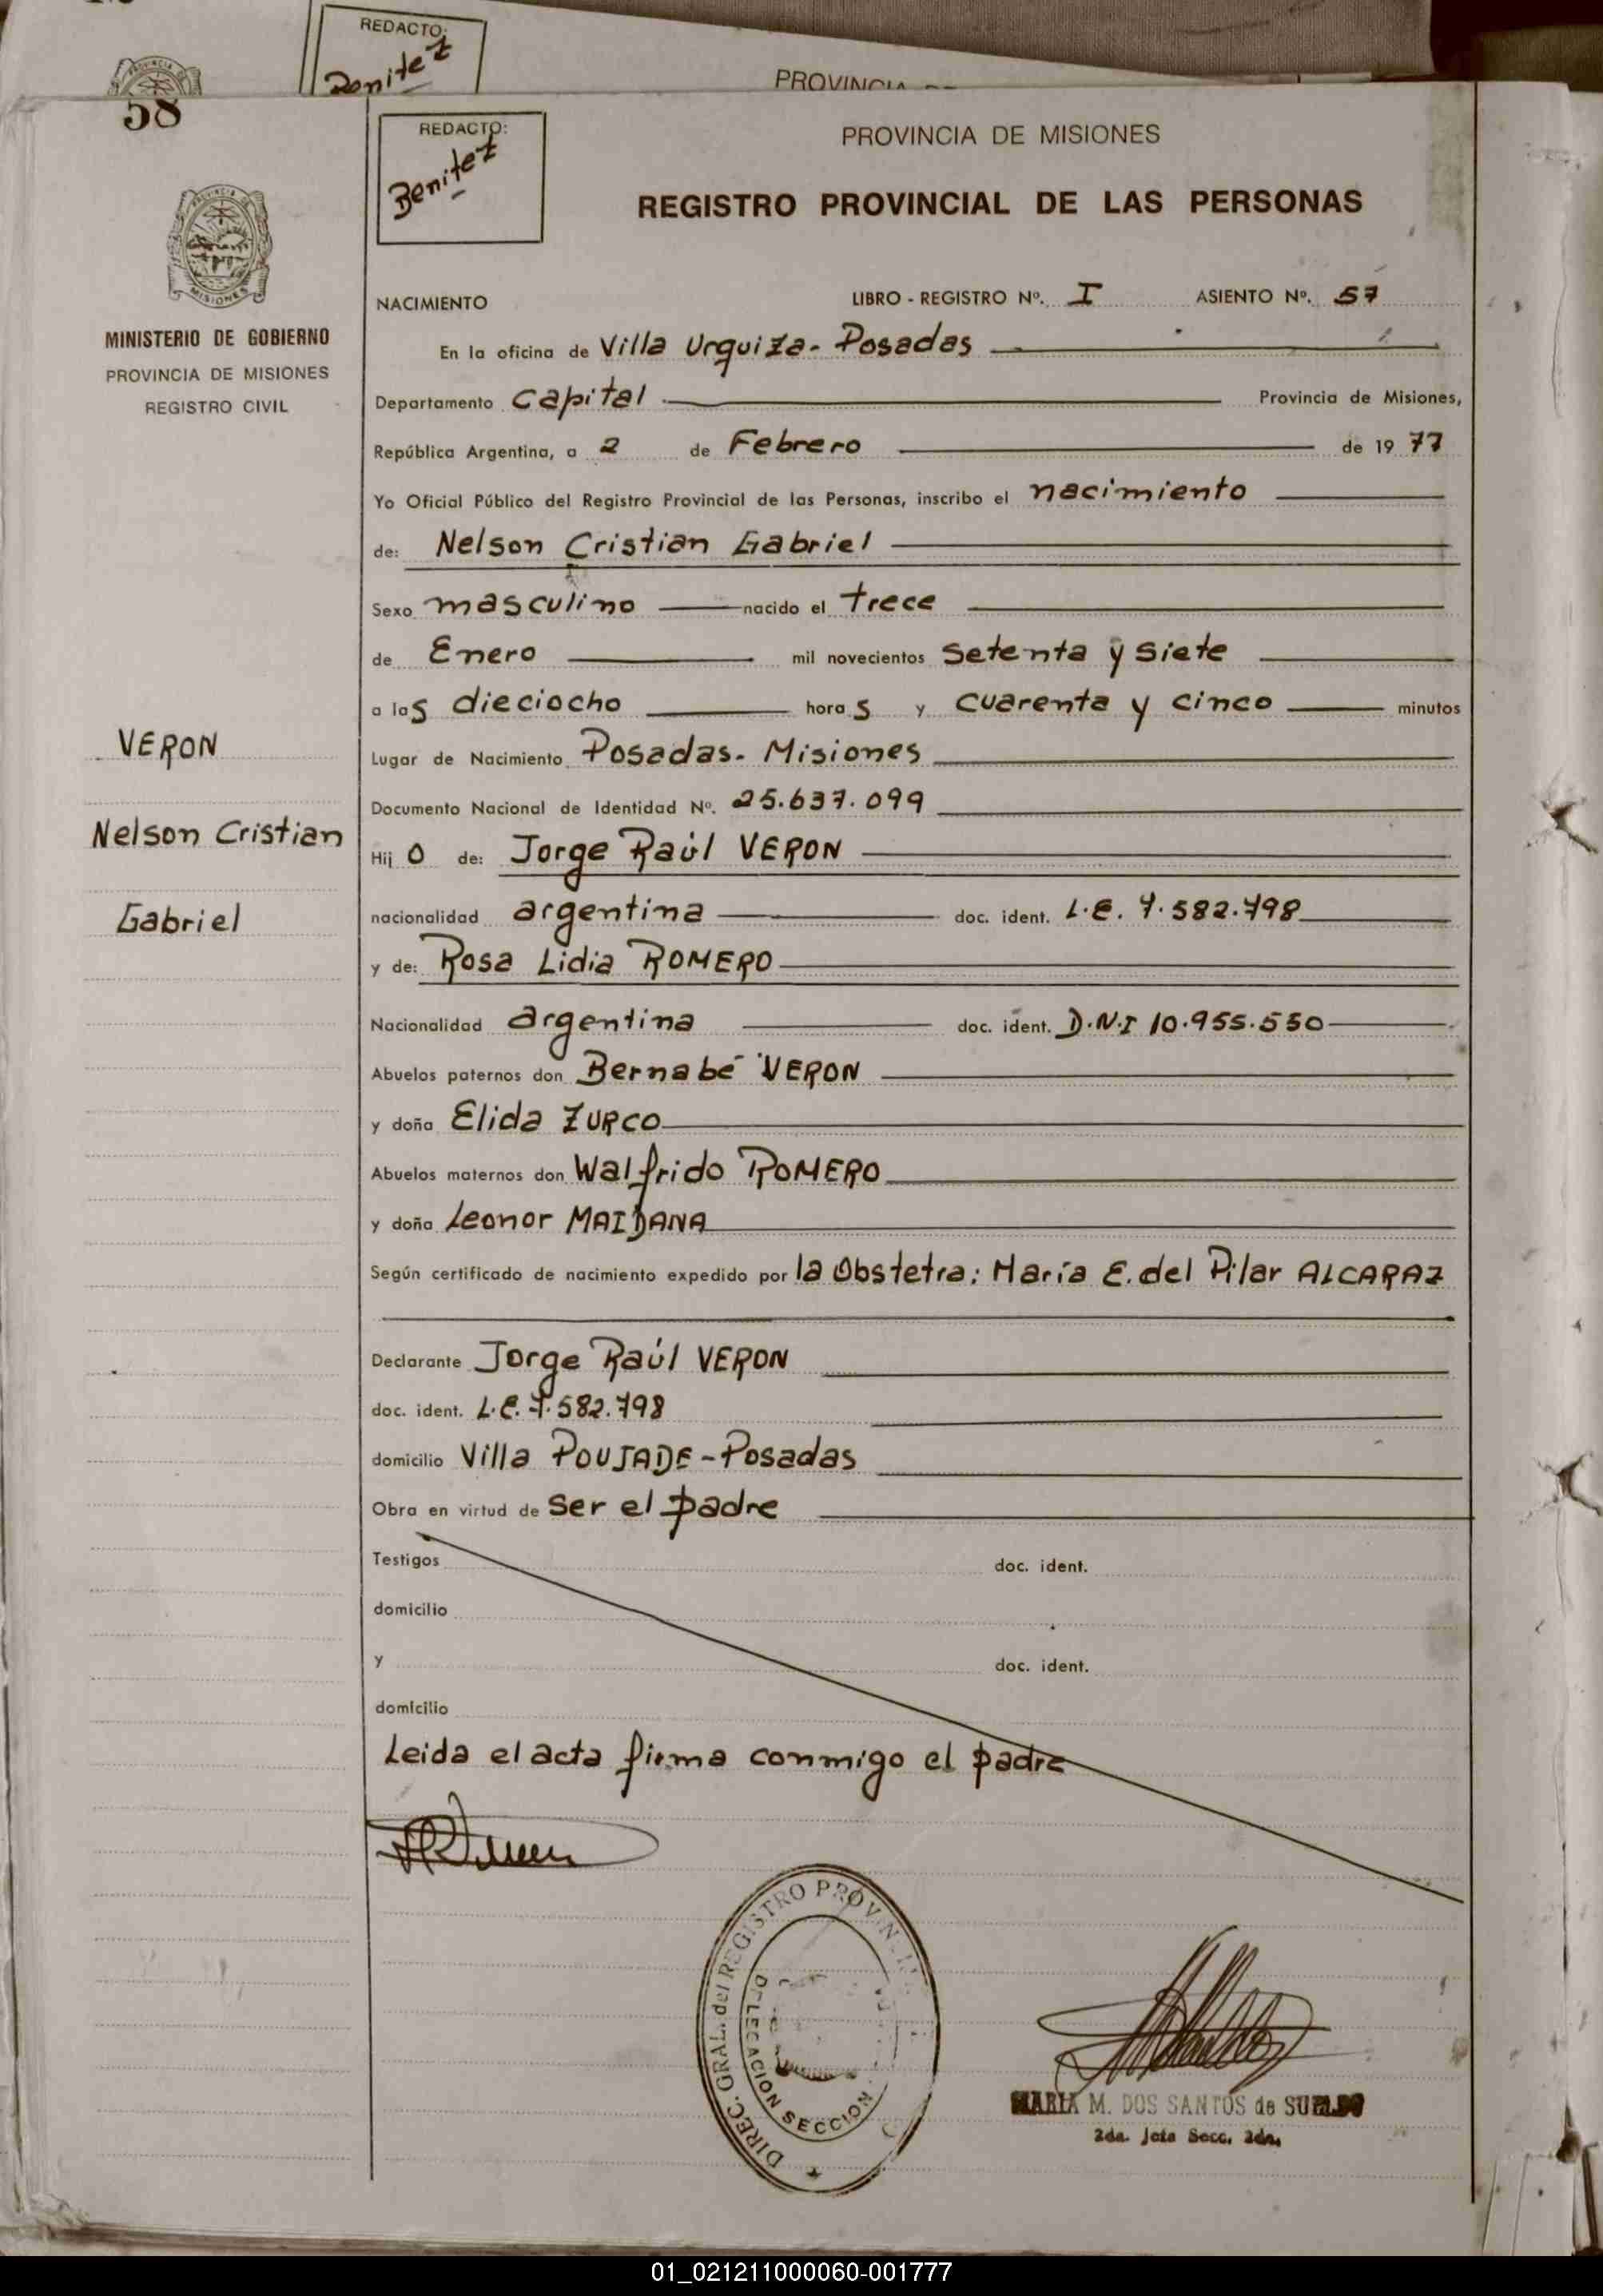 REDACTO:
Benitez
PROVINCIA DE
58
REDACTO:
Benitez
PROVINCIA DE MISIONES
REGISTRO PROVINCIAL DE LAS PERSONAS
MISIONES
MINISTERIO DE GOBIERNO
PROVINCIA DE MISIONES
REGISTRO CIVIL
NACIMIENTO LIBRO - REGISTRO Nº. I ASIENTO Nº. 57
En la oficina de Villa Urquiza - Posadas
Departamento Capital Provincia de Misiones,
República Argentina, a 2 de Febrero de 19 77
Yo Oficial Público del Registro Provincial de las Personas, inscribo el nacimiento
de: Nelson Cristian Gabriel
Sexo masculino nacido el trece
de Enero mil novecientos setenta y siete
a las dieciocho horas y cuarenta y cinco minutos
VERON
Nelson Cristian
Gabriel
Lugar de Nacimiento Posadas - Misiones
Documento Nacional de Identidad Nº. 25.637.099
Hijo de: Jorge Raúl VERON
nacionalidad argentina doc. ident. L.E. 7.582.798
y de: Rosa Lidia ROMERO
Nacionalidad argentina doc. ident. D.N.I 10.955.550
Abuelos paternos don Bernabé VERON
y doña Elida ZURCO
Abuelos maternos don Walfrido ROMERO
y doña Leonor MAIDANA
Según certificado de nacimiento expedido por la Obstetra: María E. del Pilar ALCARAZ
Declarante Jorge Raúl VERON
doc. ident. L.E. 7.582.798
domicilio Villa POUJADE - Posadas
Obra en virtud de ser el padre
Testigos doc. ident.
domicilio
y doc. ident.
domicilio
Leida el acta firma conmigo el padre
DIREC. GRAL. del REGISTRO PROVIN
DELEGACION SECCION
MARIA M. DOS SANTOS de SUELDO
2da. Jefa Secc. 2da.
01_021211000060-001777